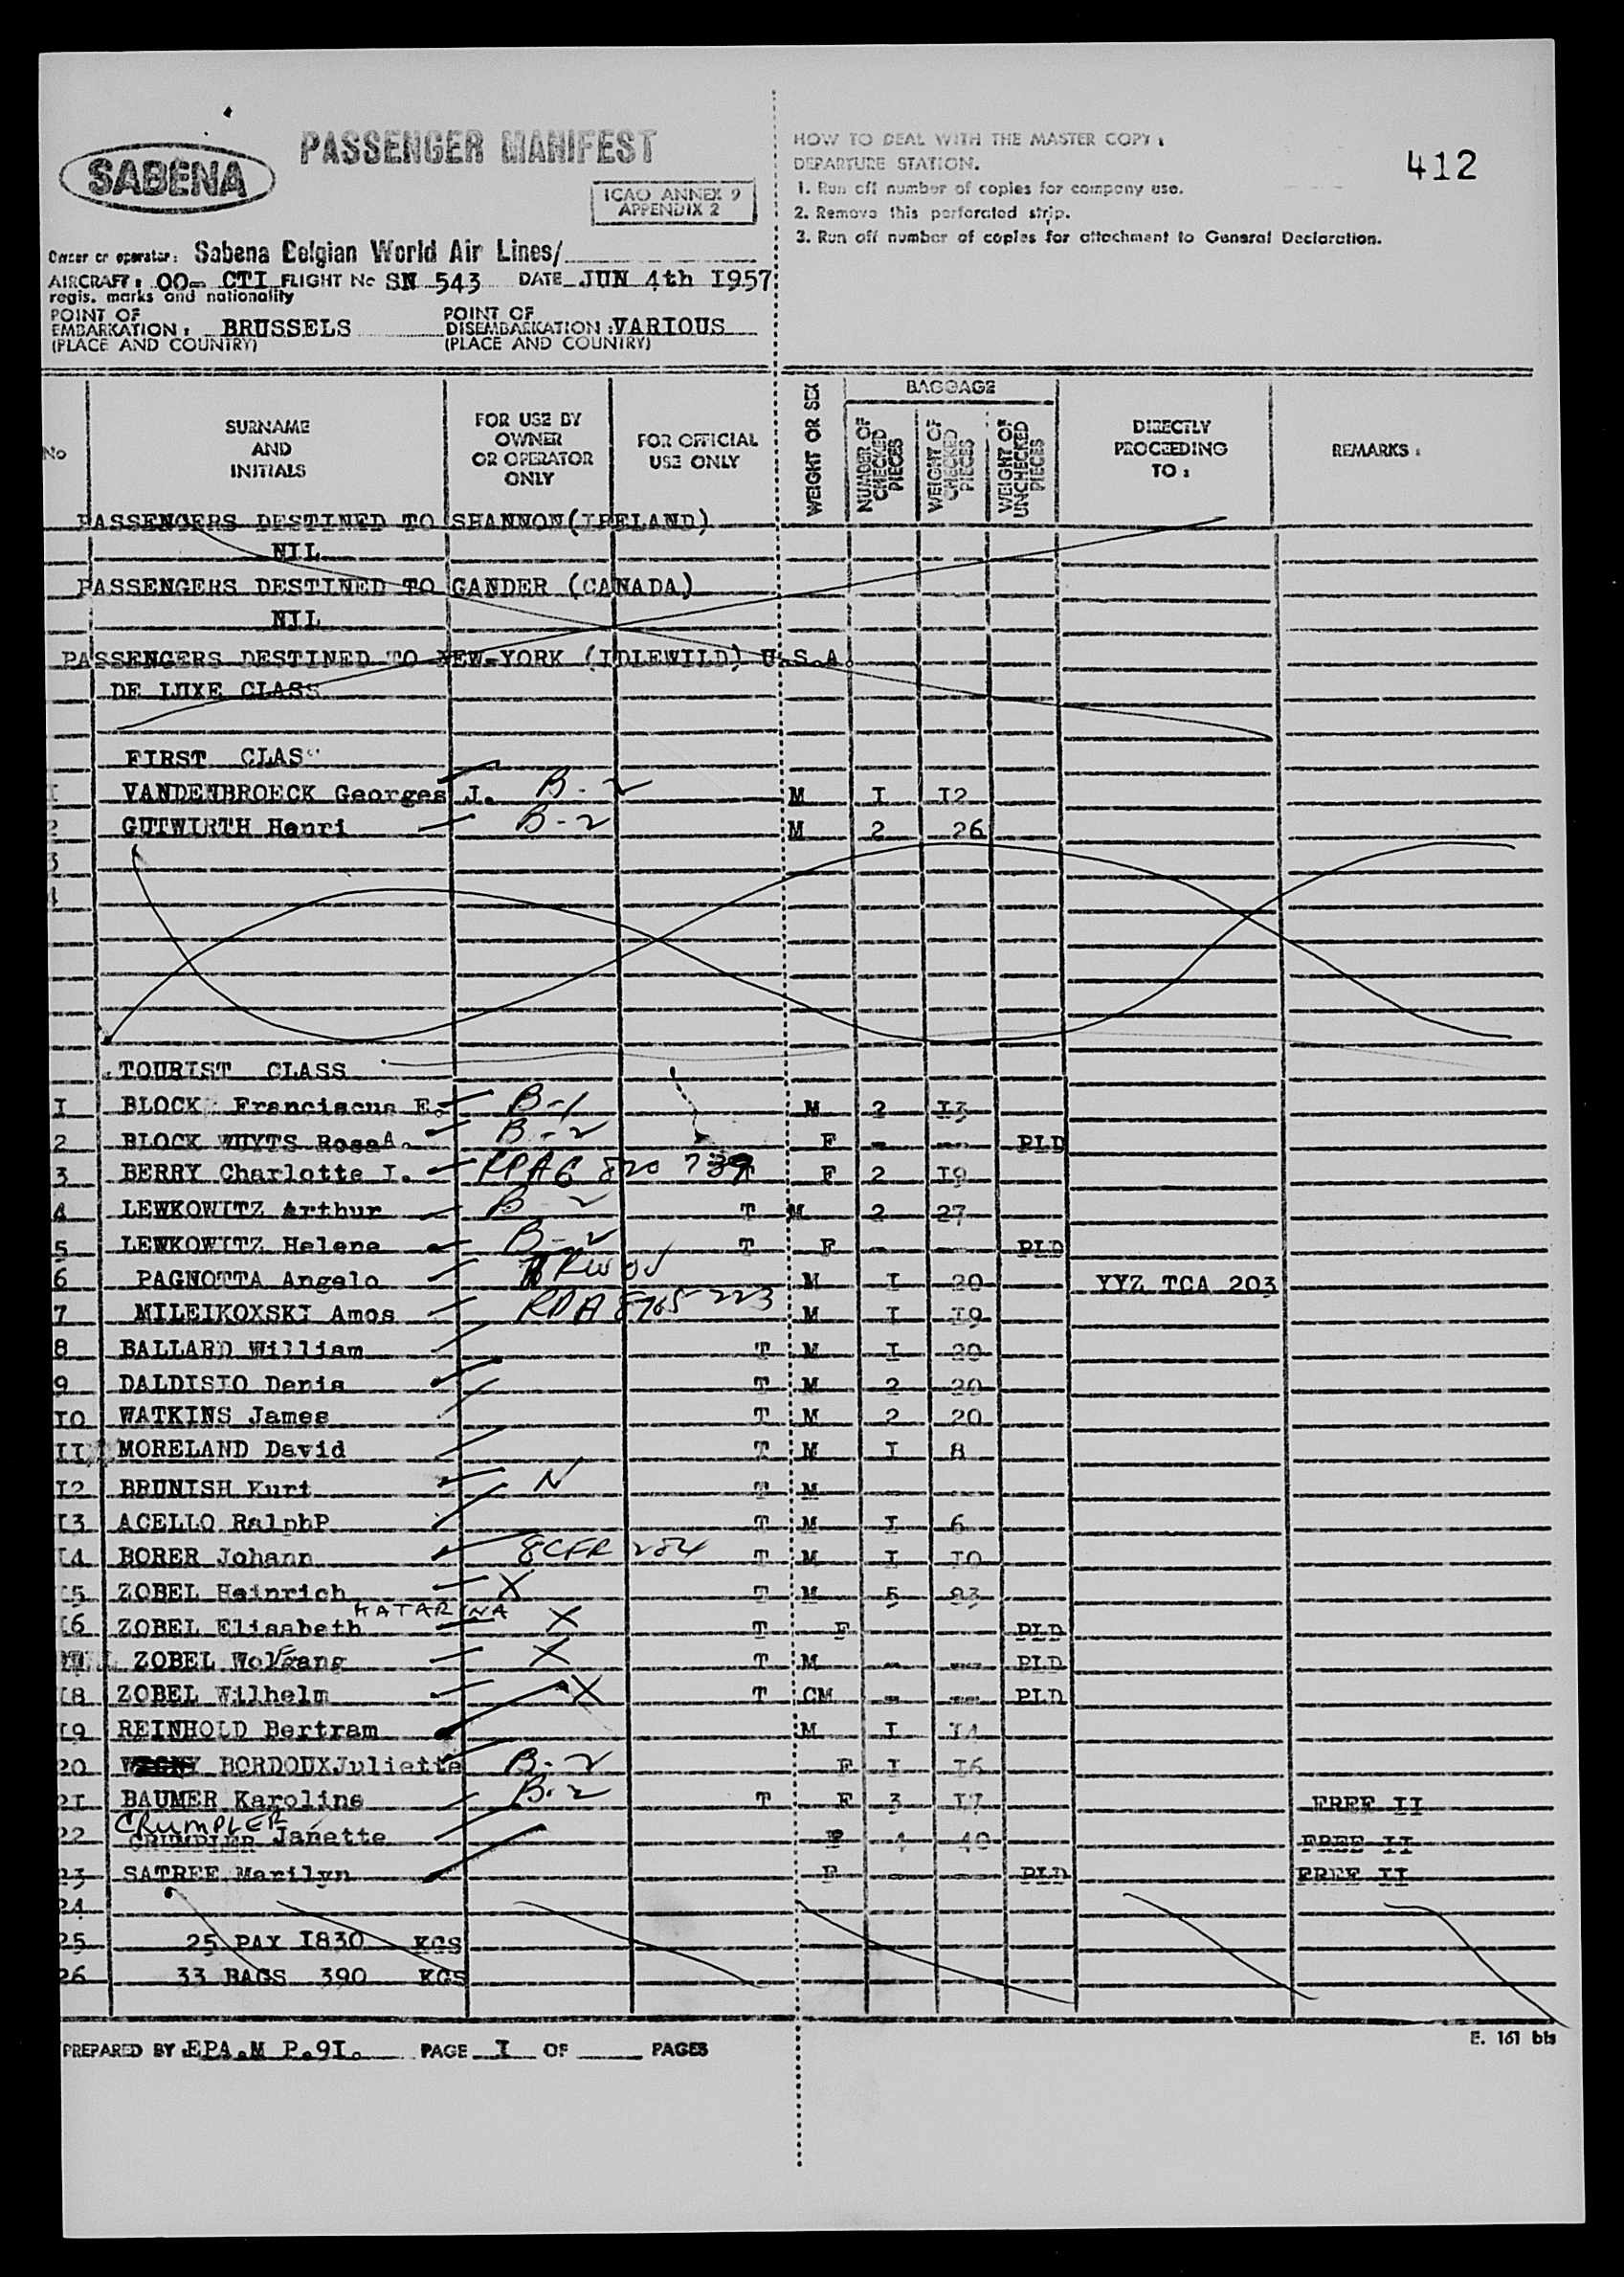 412
SABENA
PASSENGER MANIFEST
ICAO ANNEX 9
APPENDIX 2
HOW TO DEAL WITH THE MASTER COPY :
DEPARTURE STATION.
1. Run off number of copies for company use.
2. Remove this perforated strip.
3. Run off number of copies for attachment to General Declaration.
Owner or operator: Sabena Belgian World Air Lines/
AIRCRAFT: OO- CTI FLIGHT No SN 543 DATE JUN 4th I957
regis. marks and nationality
POINT OF EMBARKATION: BRUSSELS POINT OF DISEMBARKATION: VARIOUS
(PLACE AND COUNTRY) (PLACE AND COUNTRY)
No SURNAME AND INITIALS FOR USE BY OWNER OR OPERATOR ONLY FOR OFFICIAL USE ONLY WEIGHT OR SEX BAGGAGE NUMBER OF CHECKED PIECES WEIGHT OF CHECKED PIECES WEIGHT OF UNCHECKED PIECES DIRECTLY PROCEEDING TO : REMARKS :
PASSENGERS DESTINED TO SHANNON(IRELAND)
NIL
PASSENGERS DESTINED TO GANDER (CANADA)
NIL
PASSENGERS DESTINED TO NEW-YORK (IDLEWILD) U.S.A.
DE LUXE CLASS
FIRST CLASS
1 VANDENBROECK Georges J. B-2 M I I2
2 GUTWIRTH Henri B-2 M 2 26
3
4
TOURIST CLASS
I BLOCK Franciscus E. B-1 M 2 I3
2 BLOCK WUYTS RosaA. B-2 F - -- PLD
3 BERRY Charlotte I. 820 739 T F 2 I9
4 LEWKOWITZ Arthur B 2 T M 2 27
5 LEWKOWITZ Helene B-2 T F - - PLD
6 PAGNOTTA Angelo M I 20 YYZ TCA 203
7 MILEIKOXSKI Amos M I I9
8 BALLARD William T M I 20
9 DALDISIO Denis T M 2 20
I0 WATKINS James T M 2 20
II MORELAND David T M I 8
I2 BRUNISH Kurt N T M - --
I3 ACELLO RalphP T M I 6
I4 BORER Johann 8CFR T M I I0
I5 ZOBEL Heinrich X T M 5 83
KATARINA
I6 ZOBEL Elisabeth X T F - -- PLD
ZOBEL Wolfgang X T M - -- PLD
I8 ZOBEL Wilhelm X T CM - -- PLD
I9 REINHOLD Bertram M I I4
20 BORDOUXJuliette B-2 F I I6
2I BAUMER Karoline B-2 T F 3 I7 FREE II
CRUMPLER
22 CRUMPLER Janette F 4 40 FREE II
23 SATREE Marilyn F - - PLD FREE II
24
25 25 PAX I830 KGS
26 33 BAGS 390 KGS
PREPARED BY EPA.M P.9I. PAGE I OF PAGES
E. 161 bis